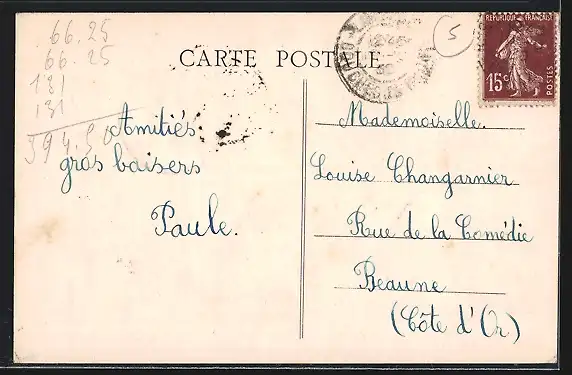 66.25
66.25
131
131
394.50
CARTE POSTALE
5
REPUBLIQUE FRANÇAISE
15c
POSTES
Amitiés
gros baisers
Paule.
Mademoiselle.
Louise Changarnier
Rue de la Comédie
Beaune
(Côte d'Or)